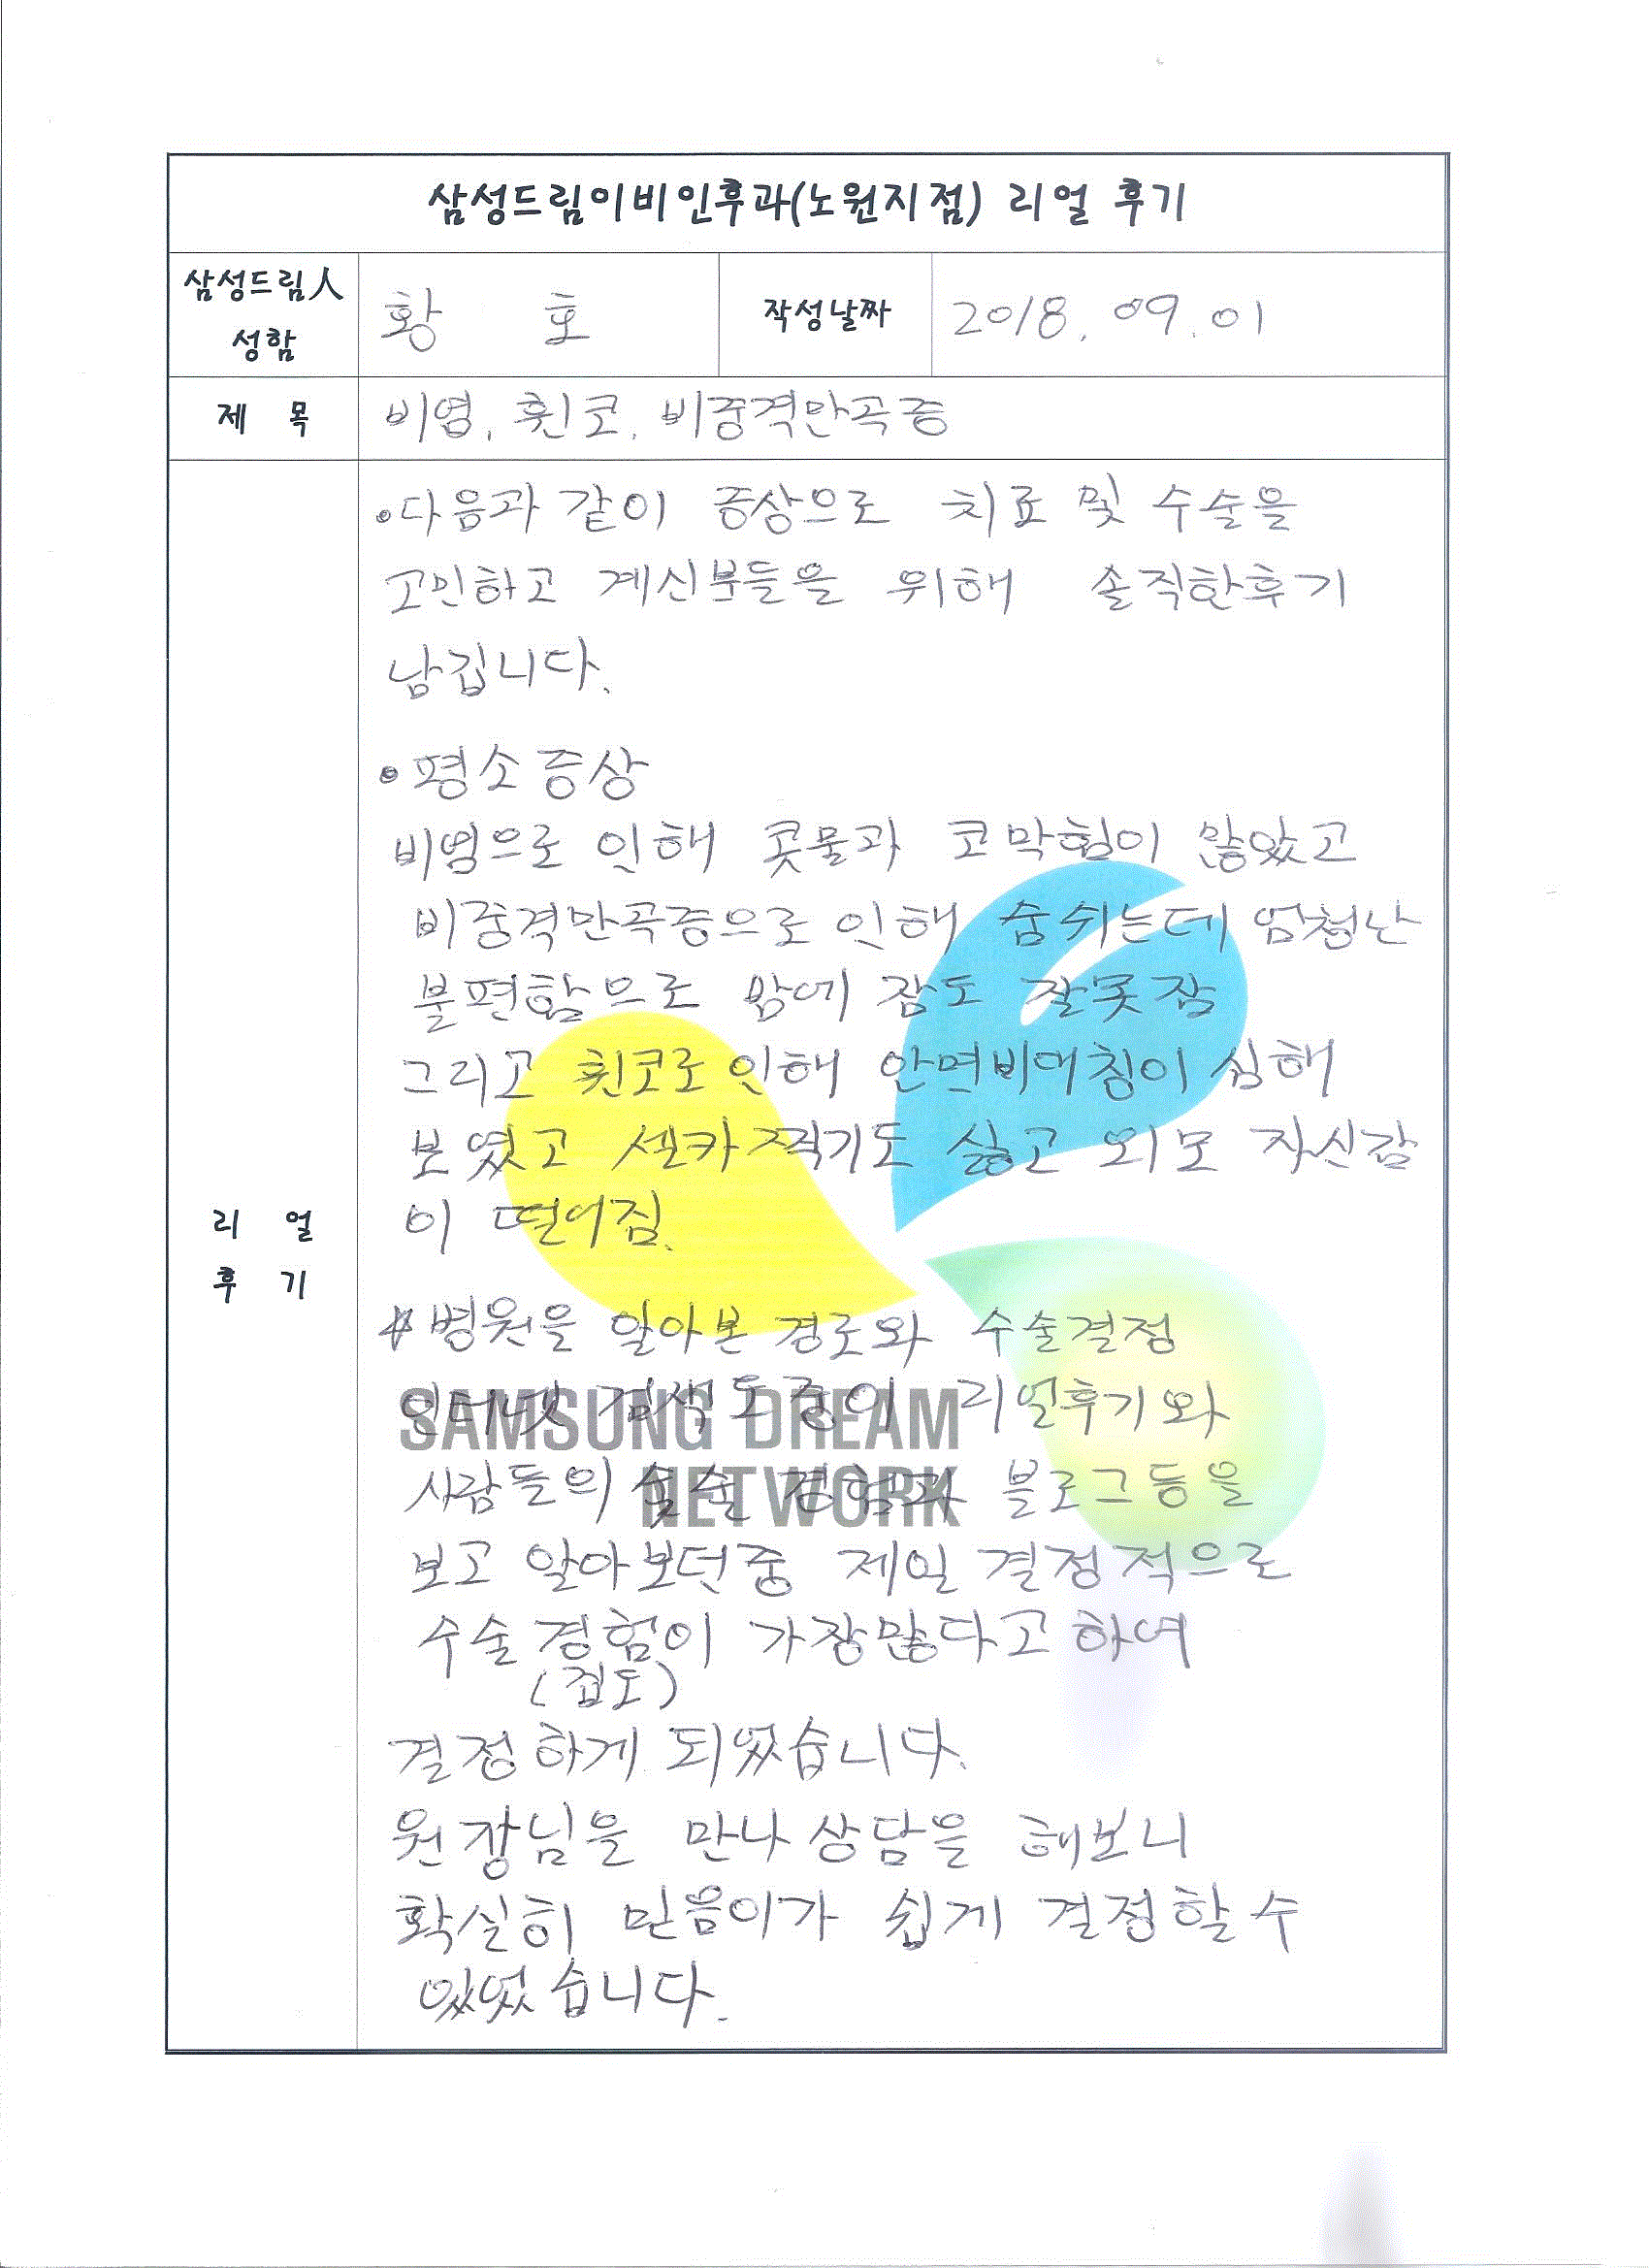 삼성드림이비인후과(노원지점) 리얼 후기
삼성드림人
성함
황 호
작성날짜
2018. 09. 01
제 목
비염, 휜코, 비중격만곡증
리 얼
후 기
•다음과 같이 증상으로 치료 및 수술을
고민하고 계신분들을 위해 솔직한후기
남깁니다.
•평소증상
비염으로 인해 콧물과 코막힘이 많았고
비중격만곡증으로 인해 숨쉬는데 엄청난
불편함으로 밤에 잠도 잘못잠
그리고 휜코로 인해 안면비대칭이 심해
보였고 셀카찍기도 싫고 외모 자신감
이 떨어짐.
병원을 알아본 경로와 수술결정
인터넷 검색도중에 리얼후기와
사람들의 수술 경험과 블로그등을
보고 알아보던중 제일 결정적으로
수술경험이 가장많다고 하여
(집도)
결정하게 되었습니다.
원장님을 만나 상담을 해보니
확실히 믿음이가 쉽게 결정할수
있었습니다.
SAMSUNG DREAM
NETWORK